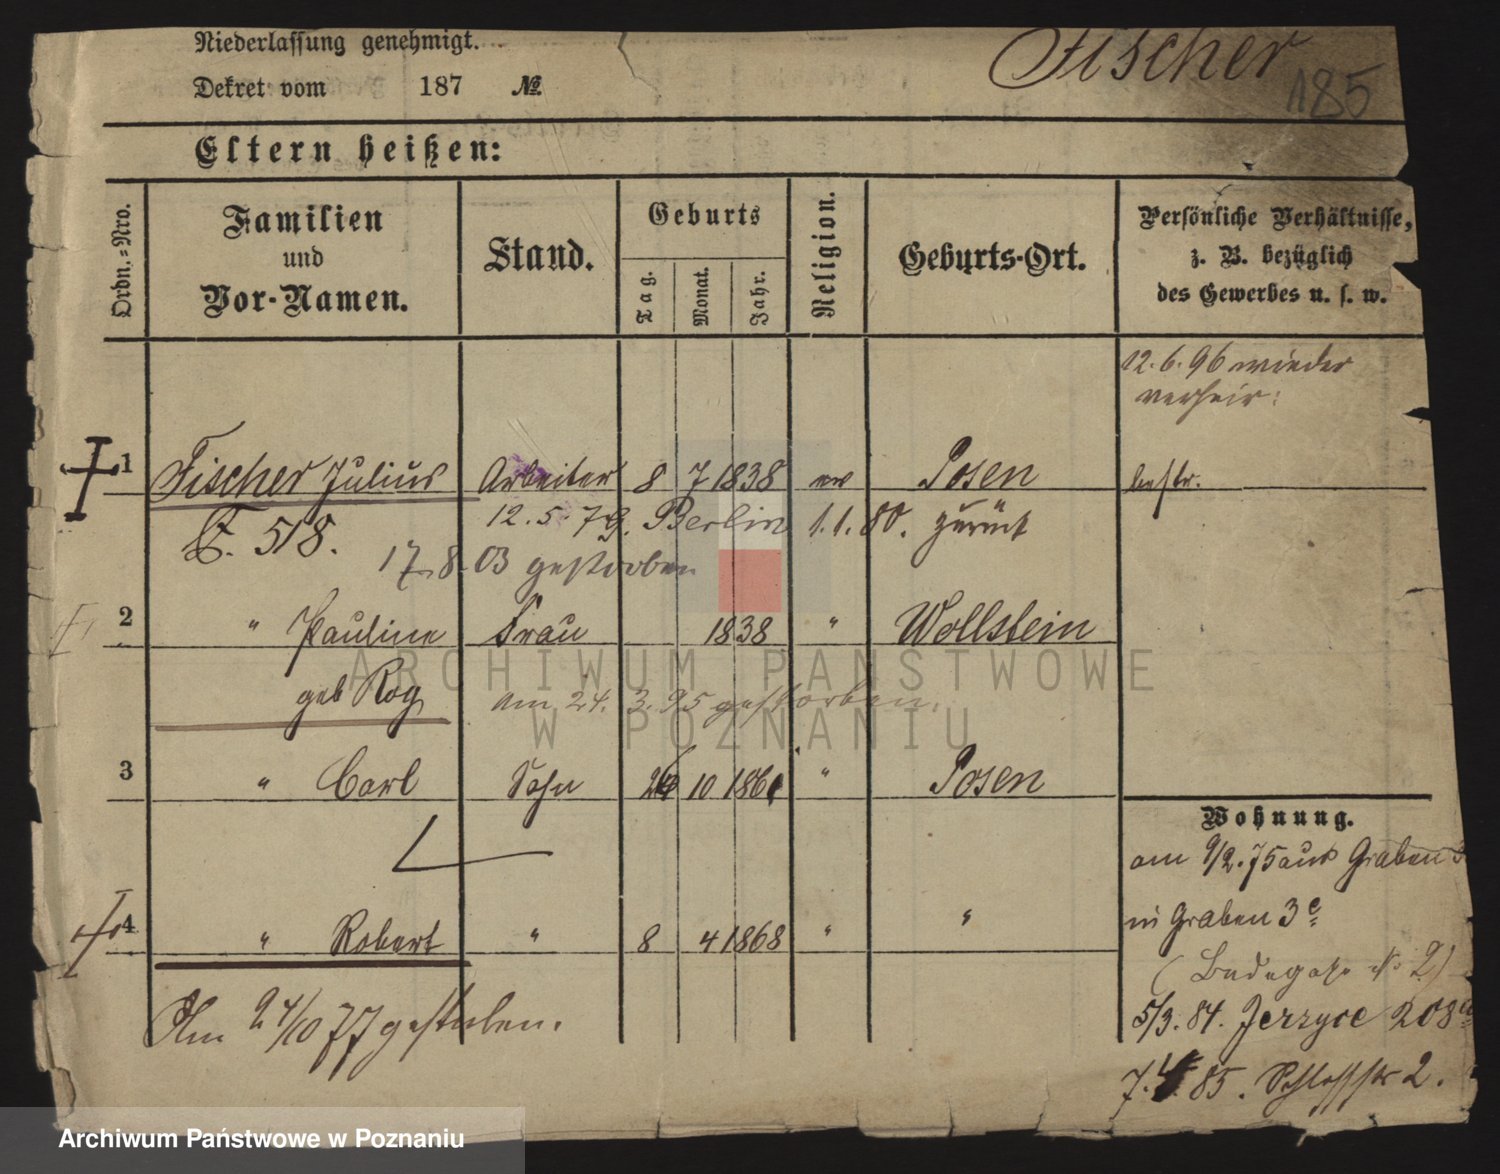 Niederlassung genehmigt.
Fischer
185
Dekret vom 187 №
Eltern heißen:
Ordn.-Nro.
Familien
und
Vor-Namen.
Stand.
Geburts
Tag.
Monat.
Jahr.
Religion.
Geburts-Ort.
Persönliche Verhältnisse,
z. B. bezüglich
des Gewerbes u. s. w.
12. 6. 96 wieder
verheir:
1 Fischer Julius Arbeiter 8 7 1838 ev Posen bestr.
518. 12. 5. 79. Berlin 1. 1. 80. zurück
17. 8. 03 gestorben
2 " Pauline Frau 1838 " Wollstein
geb Rog am 24. 3. 95 gestorben.
ARCHIWUM PAŃSTWOWE
W POZNANIU
3 " Carl Sohn 10 1861 " Posen
Wohnung.
am 9/2. 75 aus Graben
4 " Robert " 8 4 1868 " "
in Graben 3
( Badegasse No 2)
Am 24/10 77 gestorben.
5/3. 84. Jerzyce 208
7. 4. 85. Schloßstr 2.
Archiwum Państwowe w Poznaniu